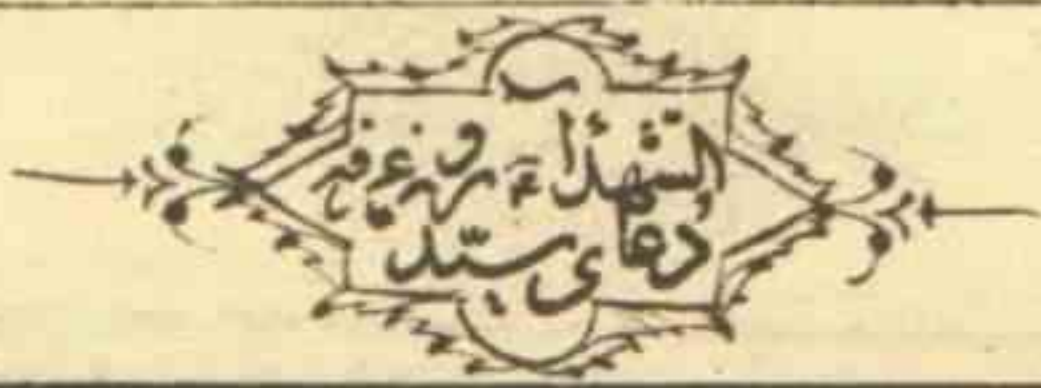 دعای سیّد
الشّهدأ ع روز عرفه